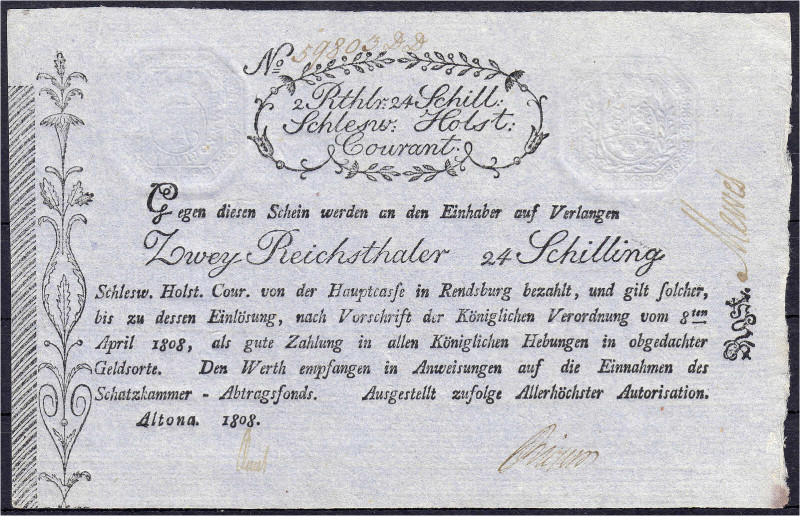 No 59803 DD
2 Rthlr: 24 Schill:
Schlesw: Holst:
Courant.
Gegen diesen Schein werden an den Einhaber auf Verlangen
Zwey Reichsthaler 24 Schilling
Schlesw. Holst. Cour. von der Hauptcaſſe in Rendsburg bezahlt, und gilt ſolcher,
bis zu dessen Einlöſung, nach Vorschrift der Königlichen Verordnung vom 8ten
April 1808, als gute Zahlung in allen Königlichen Hebungen in obgedachter
Geldsorte. Den Werth empfangen in Anweisungen auf die Einnahmen des
Schatzkammer - Abtragsfonds. Ausgestellt zufolge Allerhöchster Autorisation.
Altona. 1808.